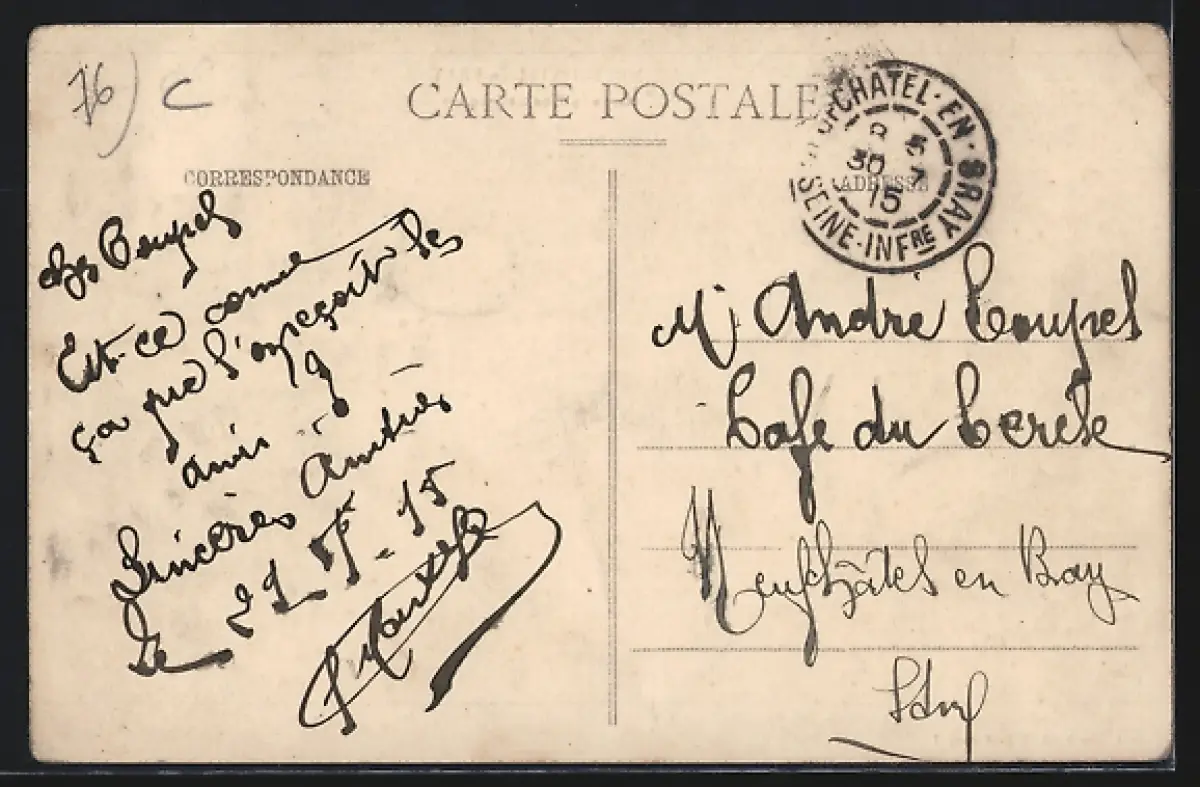 76) C
CARTE POSTALE
CORRESPONDANCE
ADRESSE
CHATEL-EN-BRAY
30 7
15
SEINE-INFRE
Coupel
Est-ce comme
ça que l'on reçoit les
amis ?
Sincères Amitiés
Le 29-7-15
Mr André Coupel
Café du Cercle
Neufchâtel en Bray
S Inf